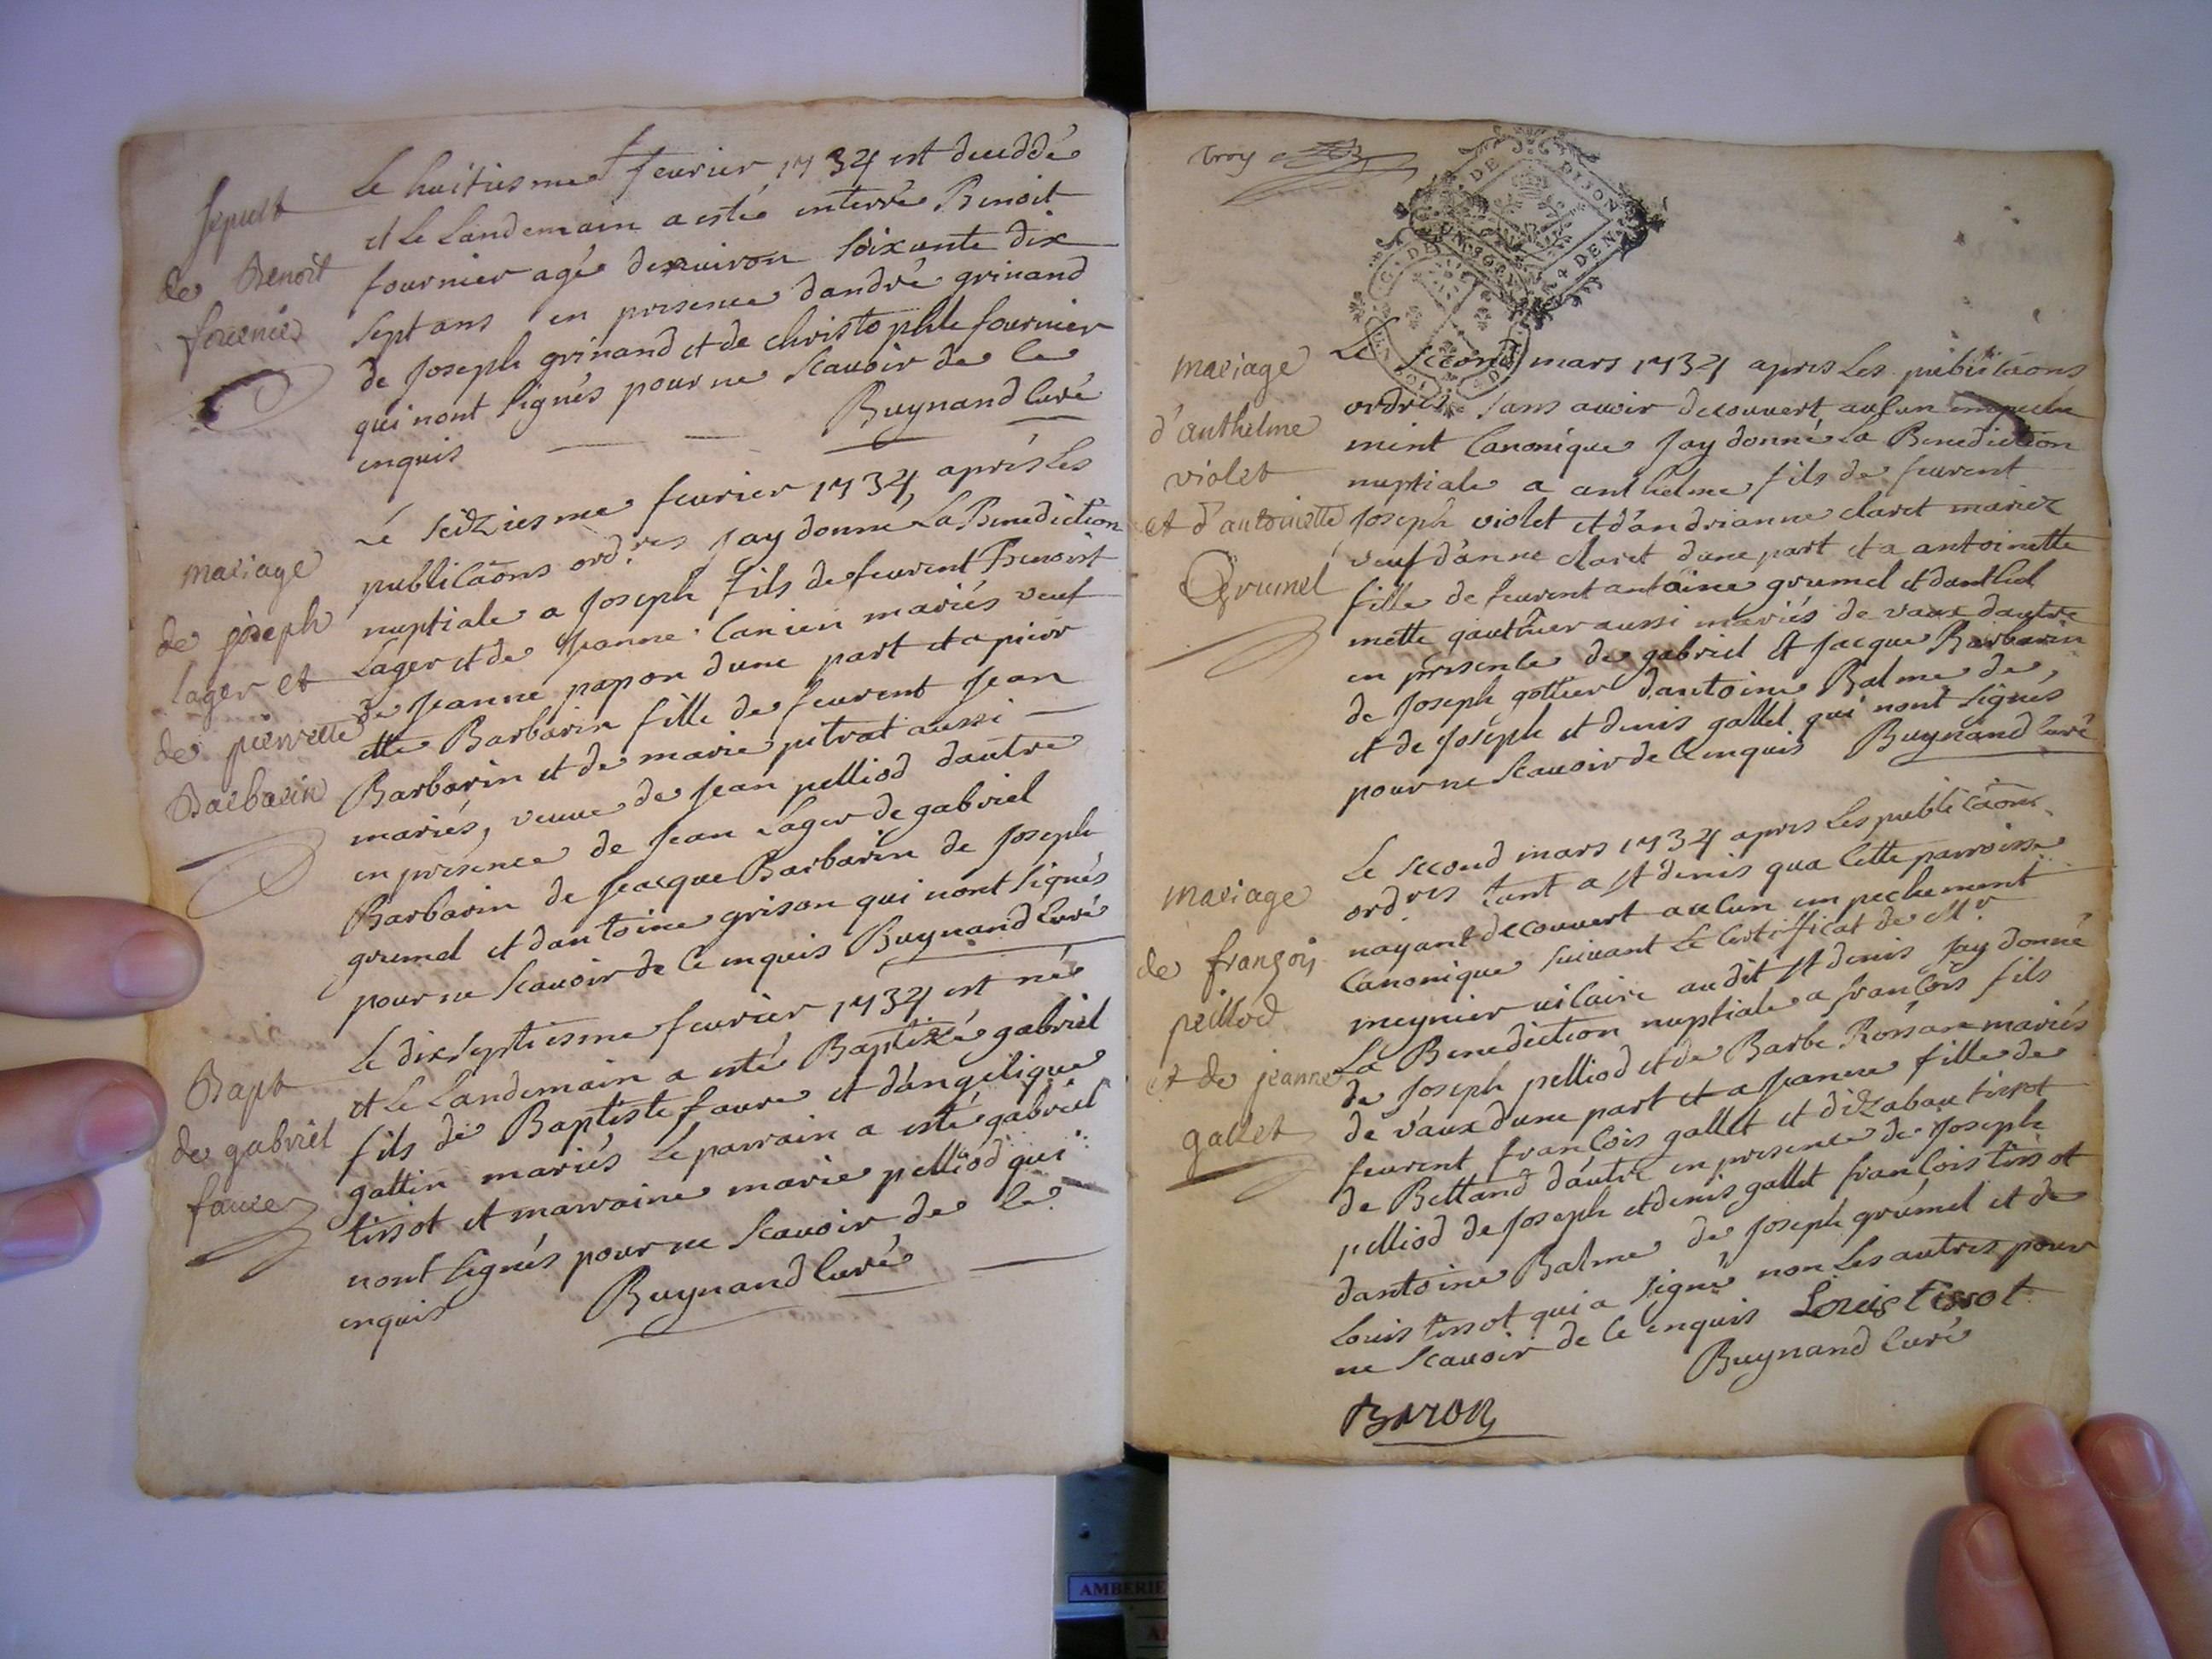 Sepult
de Benoit
fournier
Le huitiesme fevrier 1734 est deceddé
et le landemain a esté enterré Benoit
fournier agé denviron soixante dix
sept ans en presence dandré grinand
de joseph grinand et de christophle fournier
qui nont signés pour ne scauoir de ce
enquis Buynand curé
mariage
de joseph
lager et
de pierrette
Barbarin
Le seiziesme feurier 1734 aprés les
publicaõns ord.res jay donné La Benediction
nuptiale a joseph fils de feurent Benoist
Lager et de jeanne Cancien mariés veuf
de jeanne papon dune part et a pierr
ette Barbarin fille de feurent jean
Barbarin et de marie pitrat aussi
mariés, veuue de jean pelliod dautre
en presence de jean Lager de gabriel
Barbarin de jeacque Barbarin de joseph
grumel et dantoine grison qui nont signés
pour ne scauoir de ce enquis Buynand curé
Bapt
de gabriel
faure
Le dixseptiesme feurier 1734 est né
et le landemain a esté Baptizé gabriel
fils de Baptiste faure et dángelique
gattin mariés Le parrain a esté gabriel
tissot et marraine marie pelliod qui
nont signés pour ne scauoir de ce
enquis Buynand curé
troy
DE DIJON
4 DEN
G. DE
mariage
d'anthelme
violet
et d'antoinette
Grumel
Le second mars 1734 apres les publicãons
ordres sans auoir decouuert aucun empeche
ment Canonique jay donné La Benediction
nuptiale a anthelme fils de feurent
joseph violet et dándrianne claret mariez
veuf dánne claret dune part et a antoinette
fille de feurent antoine grumel et danthel
mette gauthier aussi mariés de vaux dautre
en presence de gabriel et jacque Barbarin
de joseph gottier dantoine Balme de
et de joseph et denis gallet qui nont signés
pour ne scauoir de ce enquis Buynand curé
mariage
de françois
peilliod
et de jeanne
gallet
Le second mars 1734 apres les publicãons
ordres tant a st denis qua cette parroisse
nayant decouuert aucun empechement
Canonique suiuant le certifficat de Mr
meynier uicaire audit st denis jay donné
La Benediction nuptiale a françois fils
de joseph pelliod et de Barbe Rossan mariés
de vaux dune part et a jeanne fille de
feurent françois gallet et dizabau tissot
de Bettand dáutre en presence de joseph
pelliod de joseph et denis gallet françois tissot
dantoine Balme de joseph grumel et de
Louis tissot qui a signé non les autres pour
ne scauoir de ce enquis Louis tissot
Buynand curé
BARON
AMBERIE